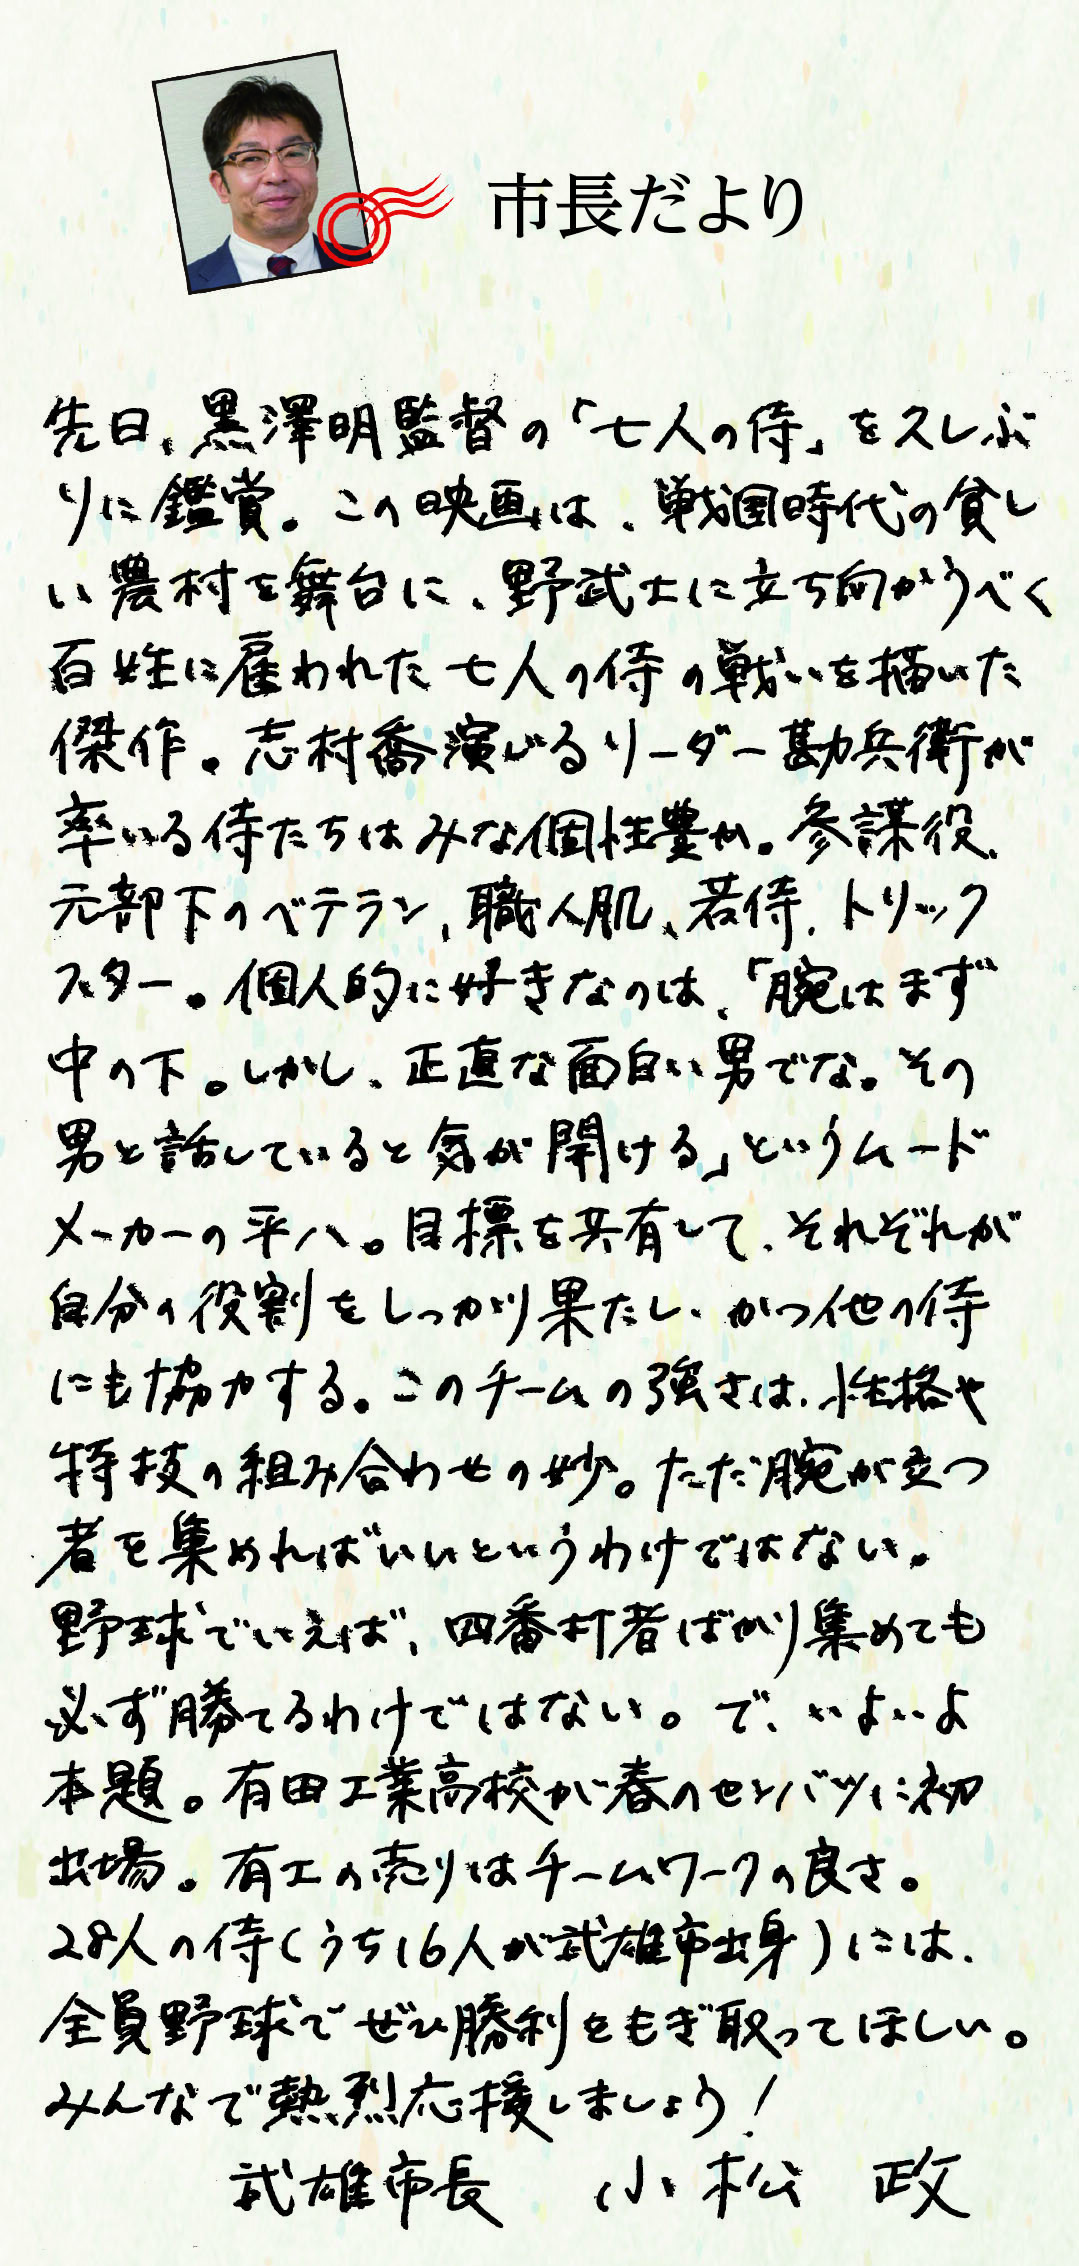 市長だより
先日、黒澤明監督の「七人の侍」を久しぶ
りに鑑賞。この映画は、戦国時代の貧し
い農村を舞台に、野武士に立ち向かうべく
百姓に雇われた七人の侍の戦いを描いた
傑作。志村喬演じるリーダー勘兵衛が
率いる侍たちはみな個性豊か。参謀役、
元部下のベテラン、職人肌、若侍、トリック
スター。個人的に好きなのは、「腕はまず
中の下。しかし、正直な面白い男でな。その
男と話していると気が開ける」というムード
メーカーの平八。目標を共有して、それぞれが
自分の役割をしっかり果たし、かつ他の侍
にも協力する。このチームの強さは、性格や
特技の組み合わせの妙。ただ腕が立つ
者を集めればいいというわけではない。
野球でいえば、四番打者ばかり集めても
必ず勝てるわけではない。で、いよいよ
本題。有田工業高校が春のセンバツに初
出場。有工の売りはチームワークの良さ。
28人の侍(うち16人が武雄市出身)には、
全員野球でぜひ勝利をもぎ取ってほしい。
みんなで熱烈応援しましょう!
武雄市長 小松 政